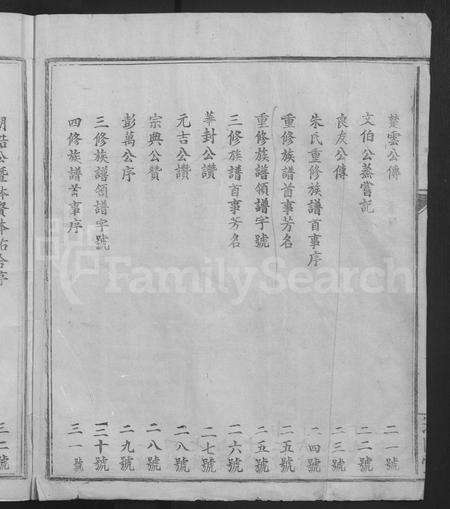 贊雲公傳 二一號
文伯公蒸嘗記 二二號
良友公傳 二三號
朱氏重修族譜首事序 二四號
重修族譜首事芳名 二五號
重修族譜領譜字號 二五號
三修族譜首事芳名 二六號
華封公讚 二七號
元吉公讚 二八號
宗興公贊 二八號
彭萬公序 二九號
三修族譜領譜字號 三十號
四修族譜首事序 三一號
三二號
FamilySearch